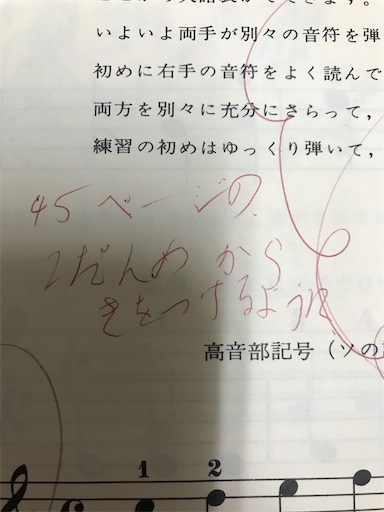 いよいよ両手が別々の音符を弾
初めに右手の音符をよく読んで
両方を別々に充分にさらって,
練習の初めはゆっくり弾いて,
45ページの
2だんめから
きをつけるように
高音部記号（ソの
1 2